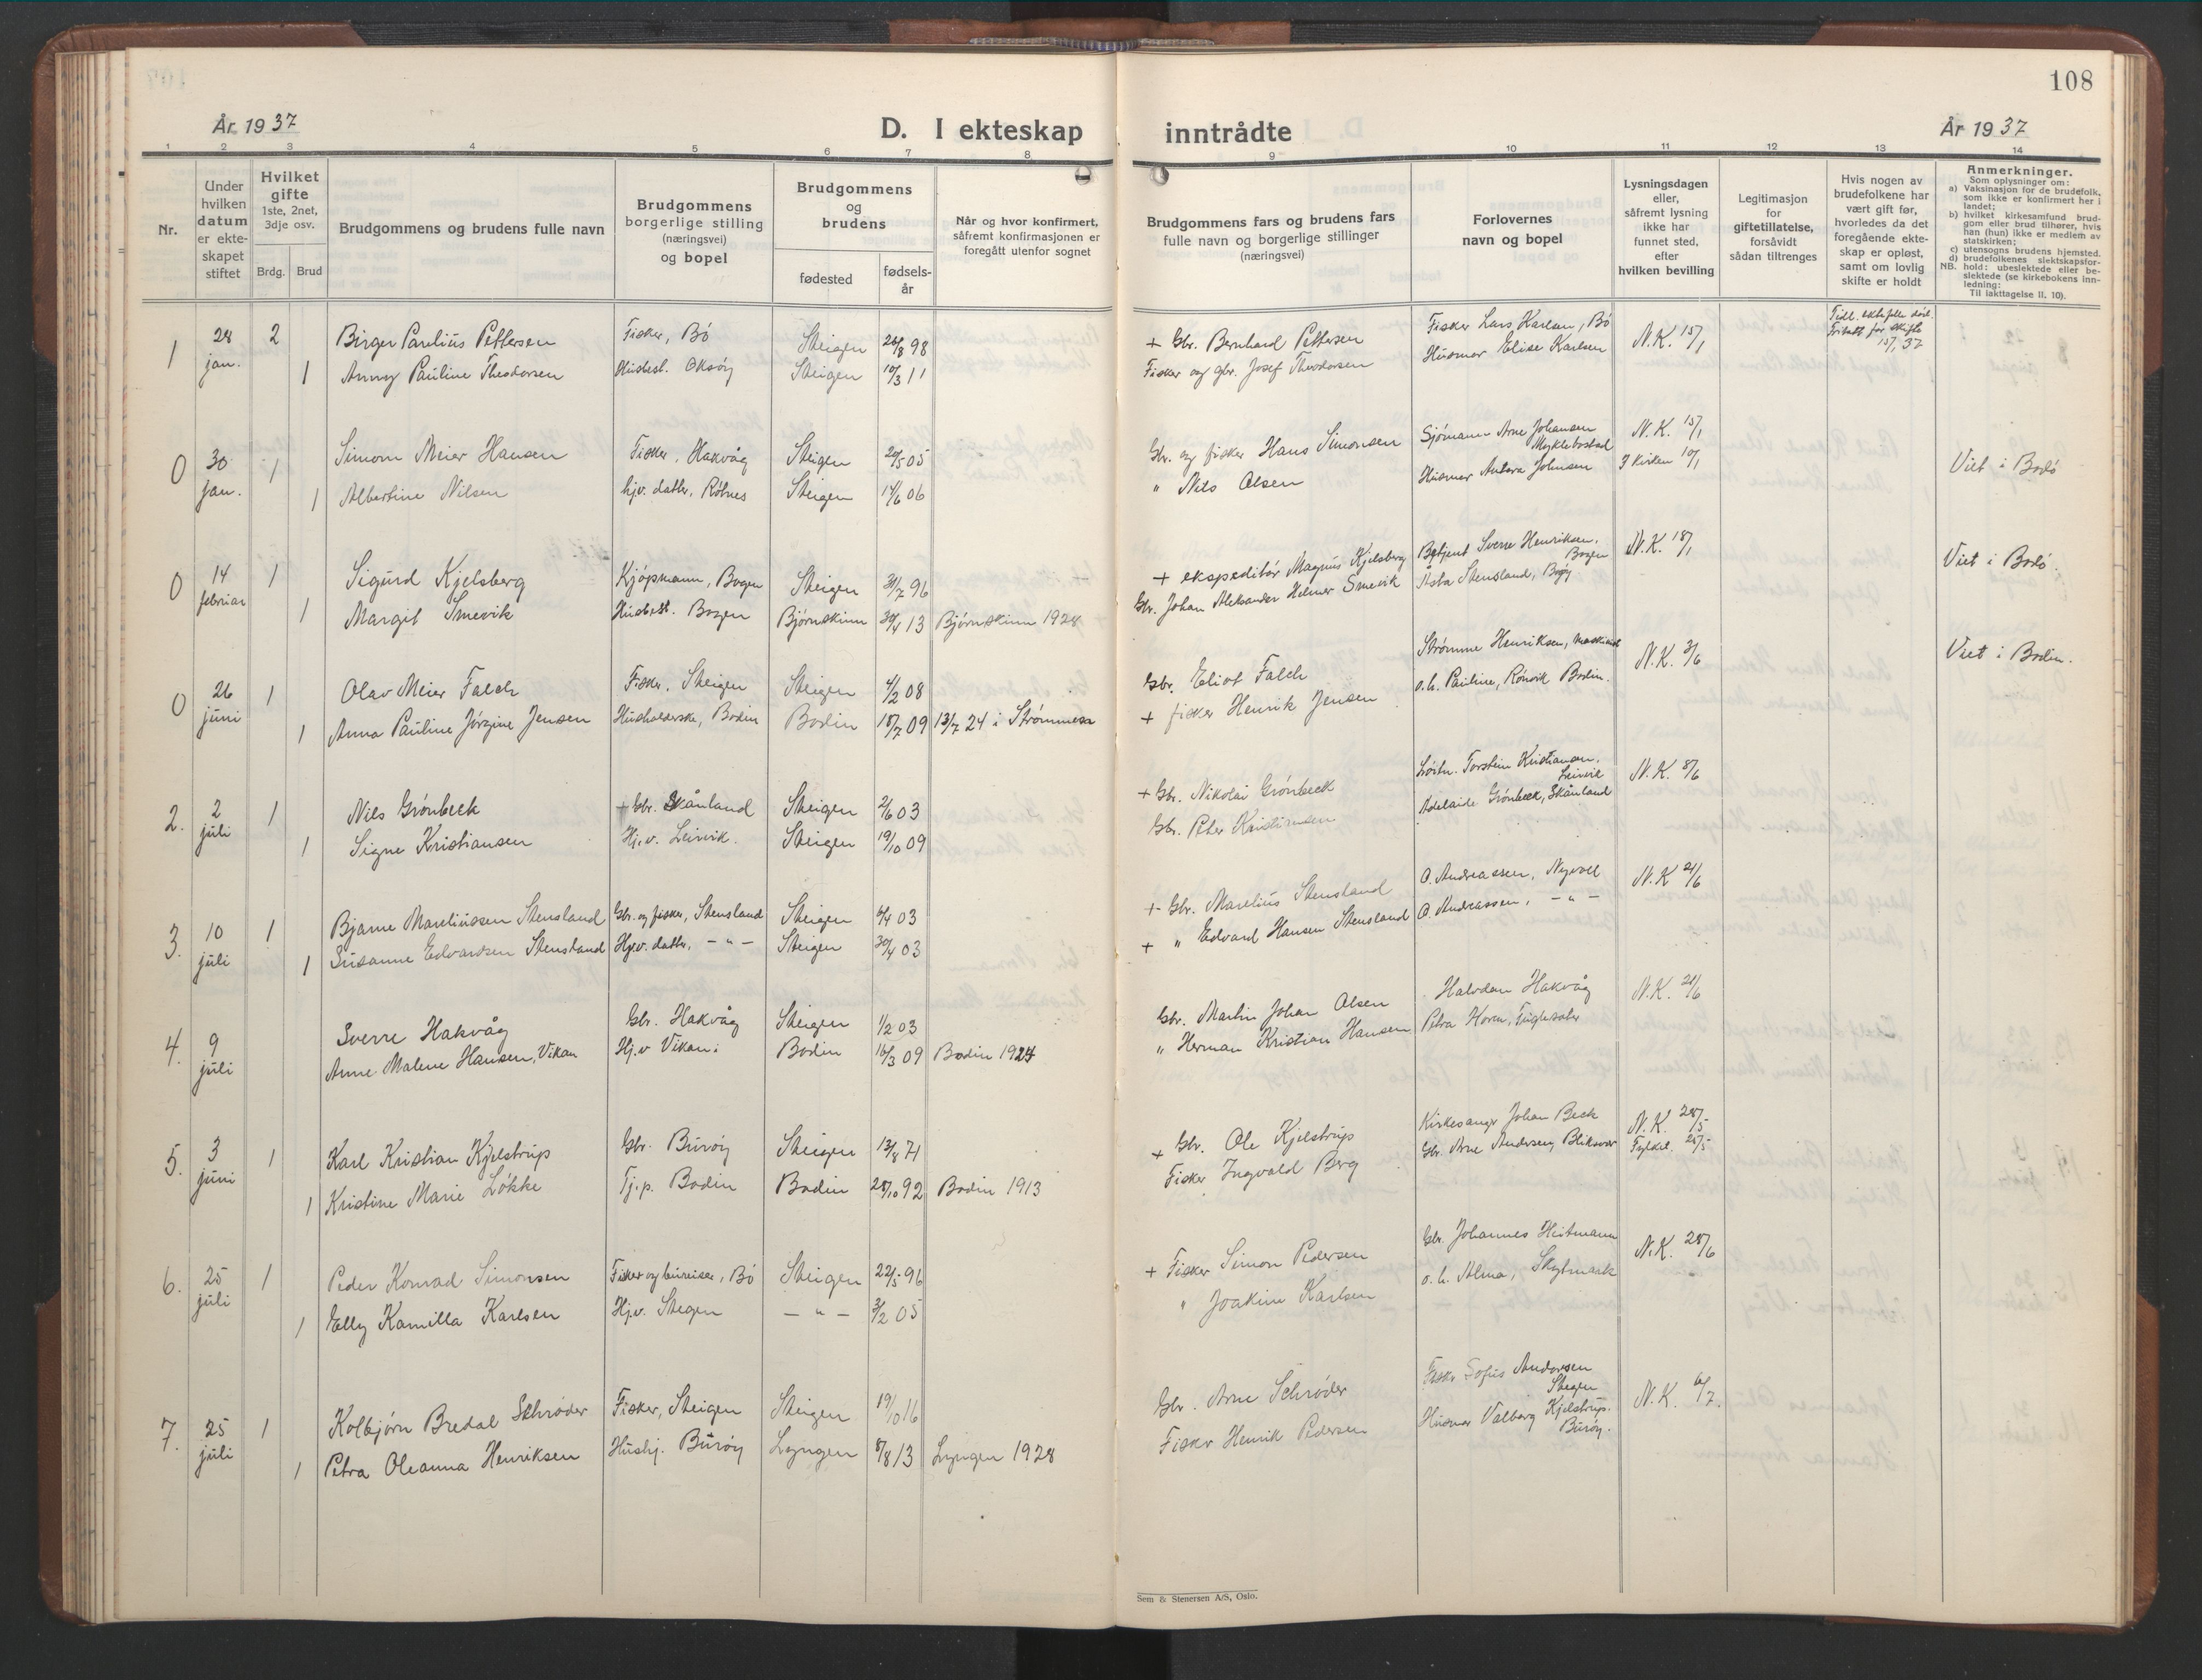 108
År 1937
D. I ekteskap
inntrådte
År 1937
1 2 3 4 5 6 7 8 9 10 11 12 13 14
Nr.
Under hvilken datum er ekteskapet stiftet
Hvilket gifte
1ste, 2net, 3dje osv.
Brdg. Brud
Brudgommens og brudens fulle navn
Brudgommens borgerlige stilling (næringsvei) og bopel
Brudgommens og brudens
fødested
fødselsår
Når og hvor konfirmert, såfremt konfirmasjonen er foregått utenfor sognet
Brudgommens fars og brudens fars fulle navn og borgerlige stillinger (næringsvei)
Forlovernes navn og bopel
Lysningsdagen eller, såfremt lysning ikke har funnet sted, efter hvilken bevilling
Legitimasjon for giftetillatelse, forsåvidt sådan tiltrenges
Hvis nogen av brudefolkene har vært gift før, hvorledes da det foregående ekteskap er opløst, samt om lovlig skifte er holdt
Anmerkninger.
Som oplysninger om:
a) Vaksinasjon for de brudefolk, som ikke er konfirmert her i landet;
b) hvilket kirkesamfund brudgom eller brud tilhører, hvis han (hun) ikke er medlem av statskirken;
c) utensogns brudens hjemsted.
d) brudefolkenes slektskapsforhold: ubeslektede eller beslektede (se kirkebokens innledning:
NB. Til iakttagelse II, 10).
1 28 jan. 2 Birger Parelius Pettersen Fisker, Bö Steigen 26/8 98 + Gbr. Bernhard Pettersen Fisker Lars Karlsen, Bö N.K. 15/1 Tidl. ektefelle död. Fritatt for skifte 15/1 37
1 Anny Pauline Theodorsen Husbest. Oksöy Steigen 10/3 11 Fisker og gbr. Josef Theodorsen Husmor Elise Karlsen
0 30 jan. 1 Simon Meier Hansen Fisker, Hakvåg Steigen 20/5 05 Gbr. og fisker Hans Simonsen Sjömann Arne Johansen Myklebostad N.K. 15/1 Viet i Bodö
1 Albertine Nilsen hjv. datter, Rötnes Steigen 14/6 06 " Nils Olsen Husmor Johnsen I kirken 10/1
0 14 februar 1 Sigurd Kjelsberg Kjöpmann, Bogen Steigen 31/7 96 + ekspeditör Magnus Kjelsberg Betjent Sverre Henriksen, Bogen N.K. 18/1 Viet i Bodö.
1 Margit Smevik Husbest. Bogen Bjørnskinn 30/4 13 Bjørnskinn 1928 Gbr. Johan Aleksander Helmer Smevik Asta Stensland, Bogöy
0 26 juni 1 Olav Meier Falch Fisker, Steigen Steigen 4/2 08 Gbr. Eliot Falch Strømme Henriksen, maskinist N.K. 3/6 Viet i Bodin.
1 Anna Pauline Jörgine Jensen Husholderske, Bodin Bodin 18/7 09 13/7 24 i Strømmen + fisker Henrik Jensen o.h. Pauline, Rönvik Bodin.
2. 2 juli 1 Nils Grönbeck + Gbr. Skånland Steigen 2/6 03 + Gbr. Nikolai Grönbeck Torstein Kristiansen, Leirvik N.K. 8/6
1 Signe Kristiansen Hj.v. Leirvik. Steigen 19/10 09 Gbr. Peter Kristiansen Adelaide Grönbeck, Skånland
3. 10 juli 1 Bjarne Mareliussen Stensland Gbr. og fisker, Stensland Steigen 6/4 03 + Gbr. Marelius Stensland O. Andreassen, Nyvoll N.K. 21/6
1 Susanne Edvardsen Stensland Hj.v. datter, – " – Steigen 30/4 03 + " Edvard Hansen Stensland O. Andreassen, – " –
4. 9 juli Sverre Hakvåg Gbr. Hakvåg Steigen 1/2 03 Gbr. Martin Johan Olsen Halvdan Hakvåg N.K. 21/6
Anne Malene Hansen, Vikan Hj.v Vikan. Bodin 16/3 09 Bodin 1924 " Herman Kristian Hansen Petra Horen,
5. 3 juni 1 Karl Kristian Kjelstrup Gbr. Buröy Steigen 13/8 71 + Gbr. Ole Kjelstrup Kirkesanger Johan Beck N.K. 28/5
1 Kristine Marie Lökke Tj.p. Bodin Bodin 28/10 92 Bodin 1913 Fisker Ingvald Berg Gbr. Arne Andersen, Bliksvær Fylkel. 28/5
6. 25 juli 1 Peder Konrad Simonsen Fisker og bureiser, Bö Steigen 22/5 96 + Fisker Simon Pedersen Gbr. Johannes Heitmann N.K. 28/6
1 Elly Kamilla Karlsen Hj.v. Stegen – " – 3/2 05 " Joakim Karlsen o.h. Alma, Skytmark
7. 25 juli 1 Kolbjörn Bredal Schröder Fisker, Steigen Steigen 19/10 16 Gbr. Arne Schröder Fisker Sofus Andorsen Stegen N.K. 6/7.
1 Petra Oleanna Henriksen Hushj. Buröy Lyngen 8/8 13 Lyngen 1928 Fisker Henrik Pedersen Husmor Valborg Kjelstrup. Buröy.
Sem & Stenersen A/S, Oslo.